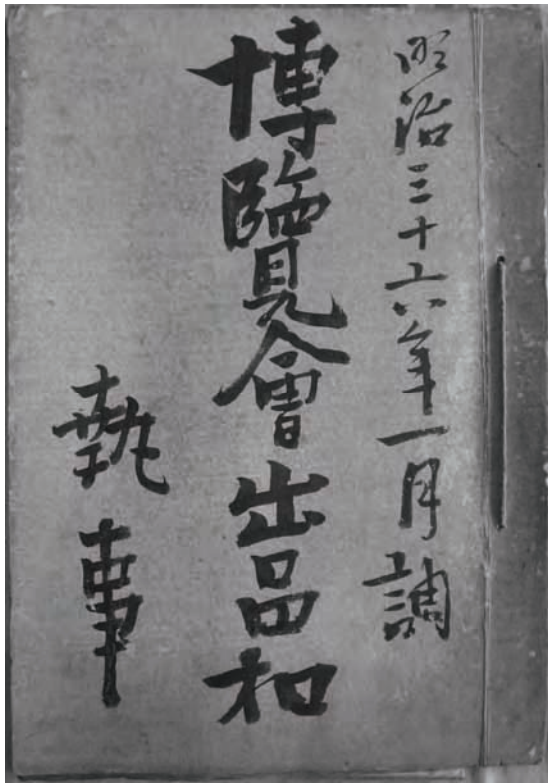 明治三十六年一月調
博覽會出品扣
執事